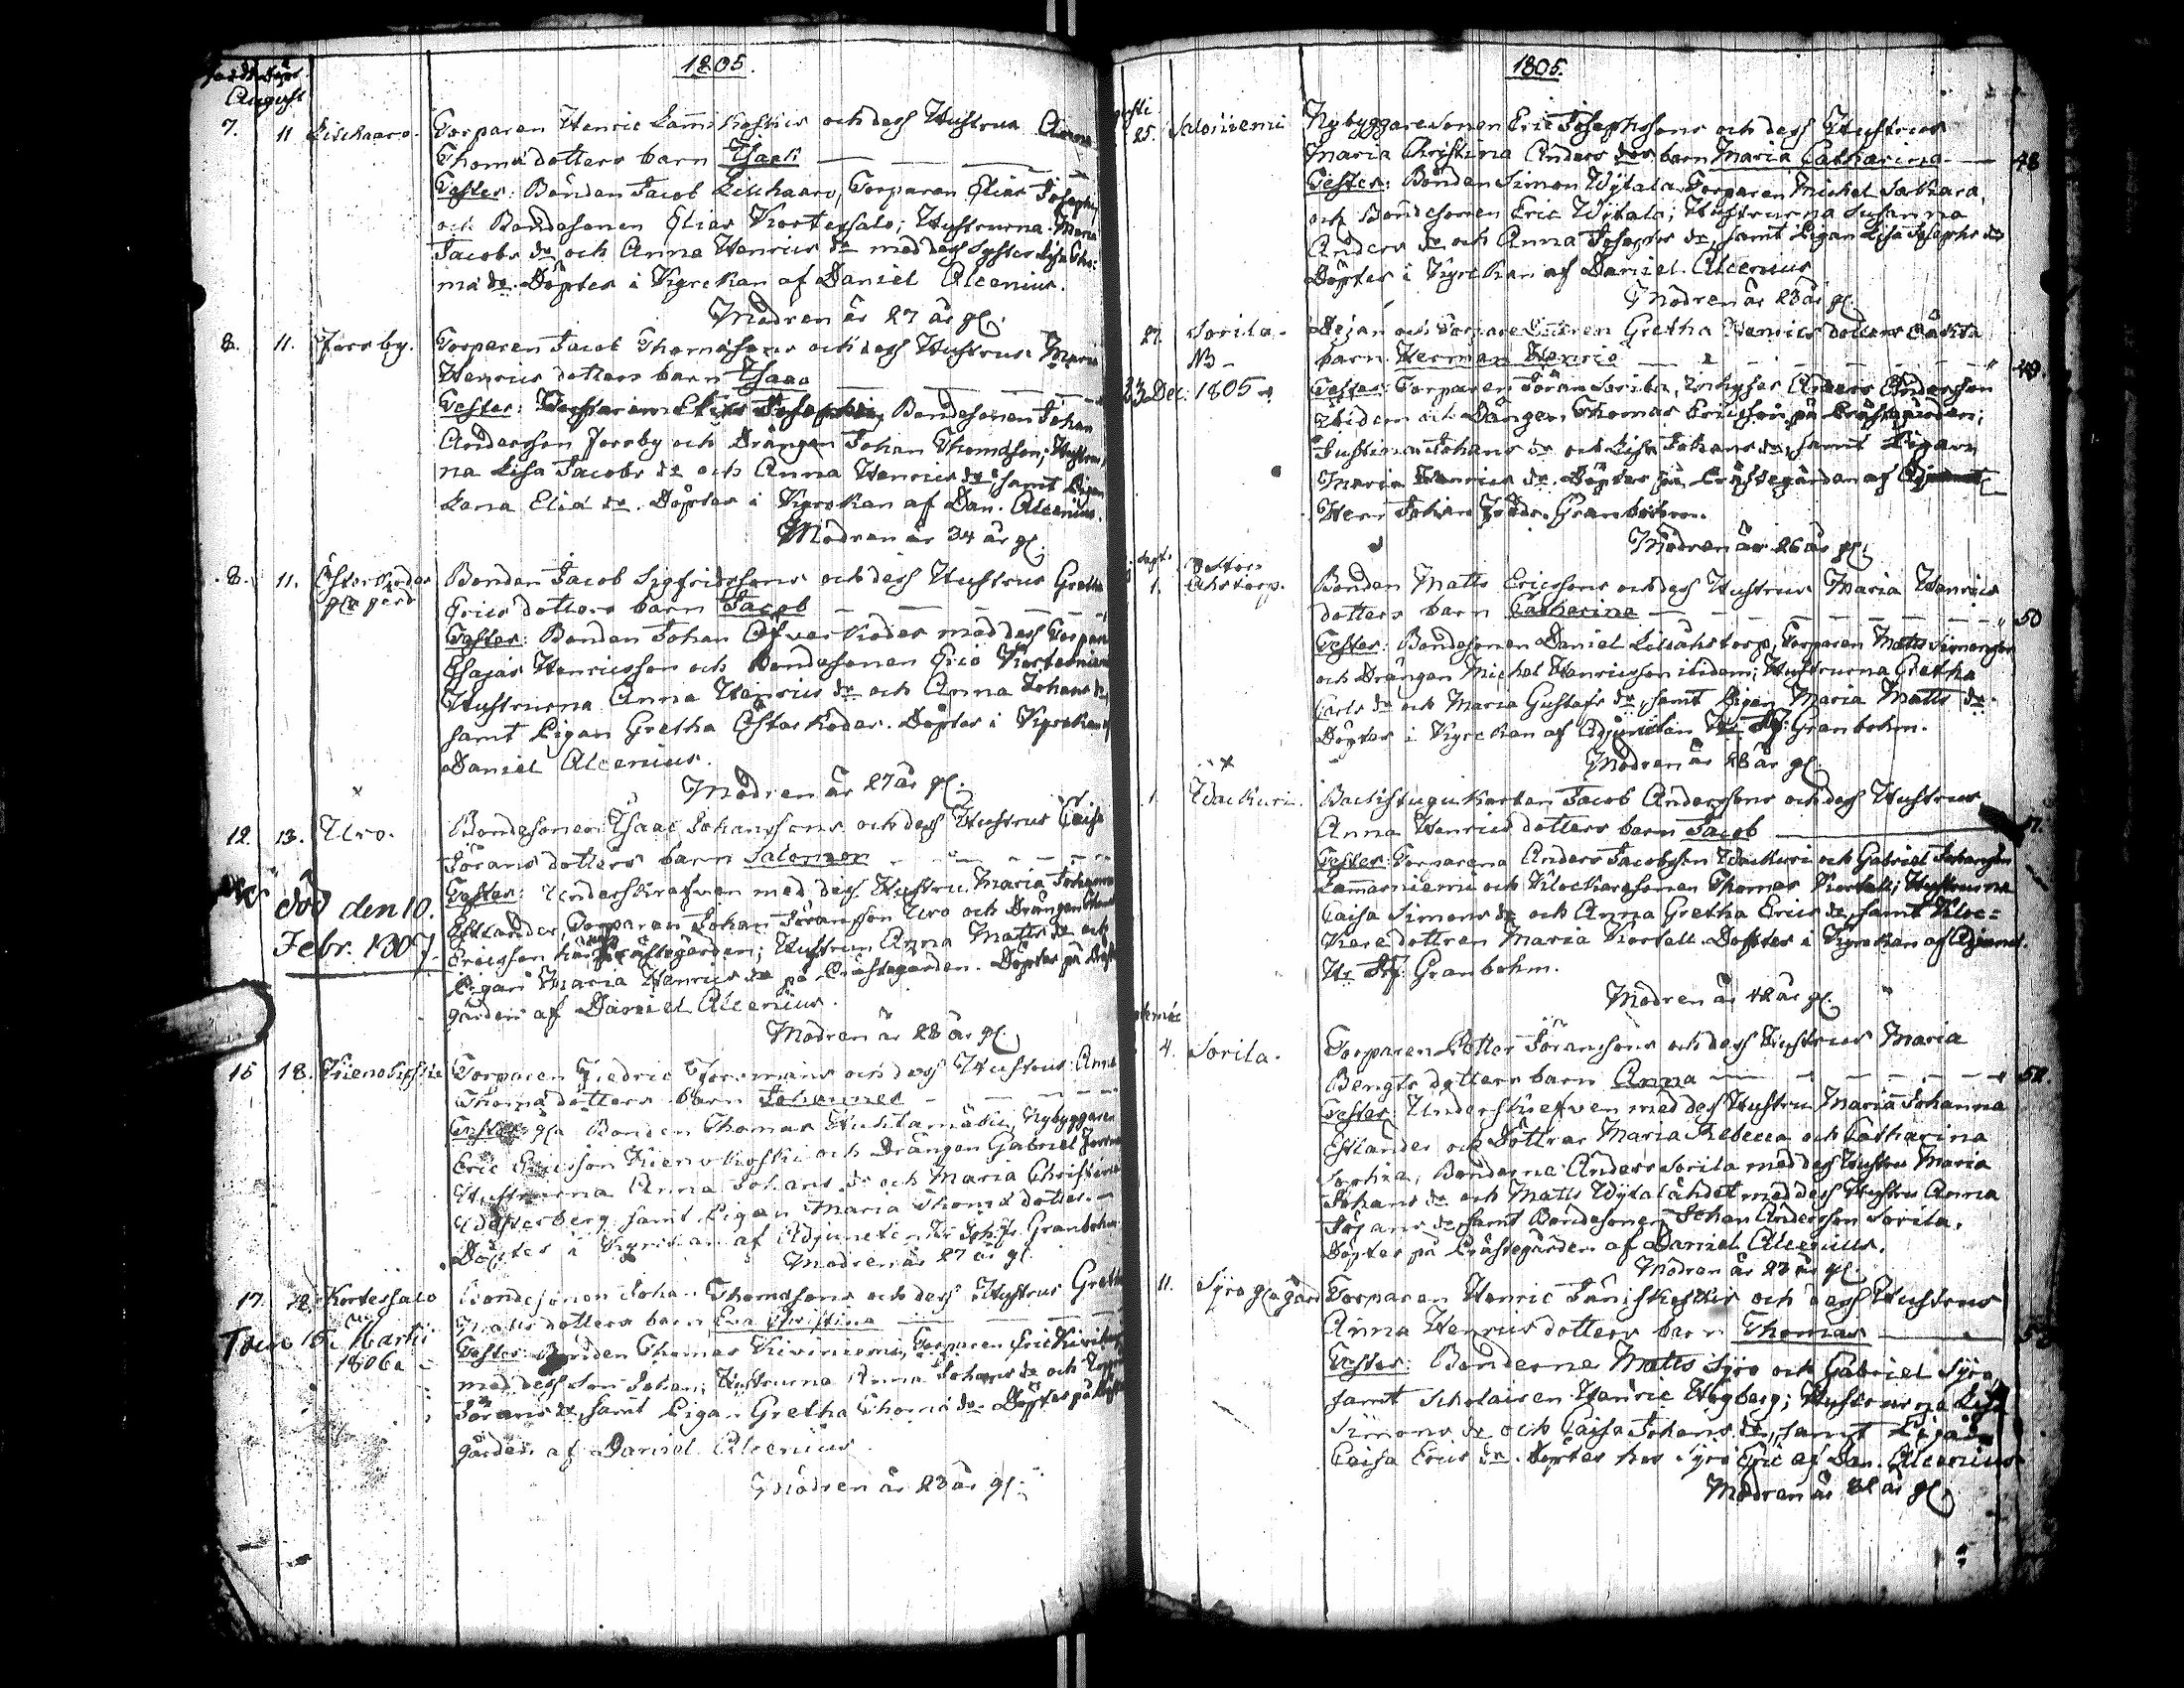 1805.
August
7. 11 Torparen Henric Lam̄ikoskis och dess Hustrus Anna
Thomæ dotters barn Isaac
Testes: Bonden Jacob Torparen Elias Josephs
och Bondesonen Elias Kortessalo; Hustrurna Maria
Jacobs dr och Anna Henrics dr med dess Syster Lisa Tho:
mæ dr. Döptes i Kyrckan af Daniel Alcenius.
Modren är 27 år gl.
8. 11. Forsby. Torparen Jacob Thomæsons och dess Hustrus Maria
Henrics dotters barn Isaac
Testes: Bondesonen Johan
Andersson Forsby och Drängen Johan Thomæson; Hustrur
na Lisa Jacobs dr och Anna Henrics dr, samt Pigan
Lena Eliæ dr. Döptes i Kyrckan af Dan. Alcenius.
Modren är 34 år gl.
8. 11. Bonden Jacob Sigfridssons och dess Hustrus Gretha
Erics dotters barn Jacob
Testes: Bonden Johan med dess Torpare
Esajas Henricsson och Bondesonen Eric
Hustrurna Anna Henrics dr och Anna Johans dr
samt Pigan Gretha Österkoder. Döptes i Kyrckan af
Daniel Alcenius.
Modren är 27 år gl.
12. 13. Uro. Bondesonen Isaac Johanssons och dess Hustrus Caisa
Jörans dotters barn Salomon
Död den 10. Testes: Underskrefven med dess Hustru Maria Johanna
Febr. 1807. Estlander, Torparen Johan Jöransson Uro och Drängen Thomas
Ericsson Prästegården; Hustrun Anna Matts dr och
Pigan Maria Henrics dr på Prästegården. Döptes på Präste
gården af Daniel Alcenius.
Modren är 28 år gl.
15 18. Torparen Fredric Forsmans och dess Hustrus Anna
Thomæ dotters barn Johannes
Testes: Bonden Thomas Nybyggaren
Eric Ericsson Kienokoski och Drängen Gabriel
Hustrurna Anna Johans dr och Maria Christina
samt Pigan Maria Thomæ dotter.
Döptes i Kyrckan af Adjuncten Hr Joh. Fr. Granbohm
Modren är 27 år gl.
17. Kortessalo Bondesonen Johan Thomæsons och dess Hustrus Gretha
Matts dotters barn Eva Christina
15 Martii 1806. Testes: Bonden Thomas Kiviniemi, Torparen Eric
med dess Son Johan; Hustrurna Anna Johans dr och
Jörans dr, samt Pigan Gretha Thomæ dr. Döptes på Präste
gården af Daniel Alcenius.
Modren är 23 år gl.
1805.
25. Saloniemi Nybyggaresonen Eric Josephsons och dess Hustrus
Maria Christina Anders drs barn Maria Catharina 48
Testes: Bonden Simon Wÿtala, Torparen Michel
och Bondesonen Eric Wÿtala; Hustrurna Susanna
Anders dr och Anna Josephs dr, samt Pigan Lisa Josephs dr
Döptes i Kyrckan af Daniel Alcenius
Modren är 23 år gl.
27. Sorita. Pejan och Torpare Gretha Henrics dotters oäkta
NB barn Herman Henric 49.
23 Dec. 1805 Testes: Torparen Jöran Sorita, Inhyses Anders Andersson
ibidem och Drängen Thomas Ericsson på Prästegården;
Justina Johans dr och Lisa Johans dr, samt Pigan
Maria Henrics dr. Döptes på Prästegården af
Herr Johan Fredr. Granbohm.
Modren är 26 år gl.
Sept.
1. Bonden Matts Ericssons och dess Hustrus Maria Henrics
dotters barn Catharina 50
Testes: Bondesonen Daniel Torparen Matts Simonsson
och Drängen Michel Henricsson ibidem; Hustrurna Gretha
Carls dr och Maria Gustafs dr, samt Pigan Maria Matts dr.
Döptes i Kyrckan af Adjuncten Hr Granbohm.
Modren är 28 år gl.
1. Wackuri. Backstugukarlen Jacob Anderssons och dess Hustrus
Anna Henrics dotters barn Jacob 51.
Testes: Torparena Anders Jacobsson Wackuri och Gabriel Johansson
Lam̄asniemi och Klockaresonen Thomas Kortell; Hustrurna
Caisa Simons dr och Anna Gretha Erics dr, samt Kloc=
karedottren Maria Kortell. Döptes i Kyrckan af Adjunct.
Hr Granbohm.
Modren är 42 år gl.
4. Sorita. Torparen Petter Jöranssons och dess Hustrus Maria
Bengts dotters barn Anna 52.
Testes: Underskrefven med dess Hustru Maria Johanna
Estlander och Döttrar Maria Rebecca och Catharina
Sophia, Bönderne Anders Sorita med dess Hustru Maria
Johans dr och Matts med dess Hustru Anna
Jörans dr, samt Bondesonen Johan Andersson Sorita.
Döptes på Prästegården af Daniel Alcenius.
Modren är 27 år gl.
11. Syro gla gård Torparen Henric Jäniskoskis och dess Hustrus
Anna Henrics dotters barn Thomas
Testes: Bönderne Matts Syro och Gabriel Syro,
samt Scholairen Henric Högberg; Hustrurna Lisa
Simons dr och Caisa Johans dr, samt Pigan
Caisa Erics dr. Döptes hos Syro Eric af Dan. Alcenius
Modren är 32 år gl.